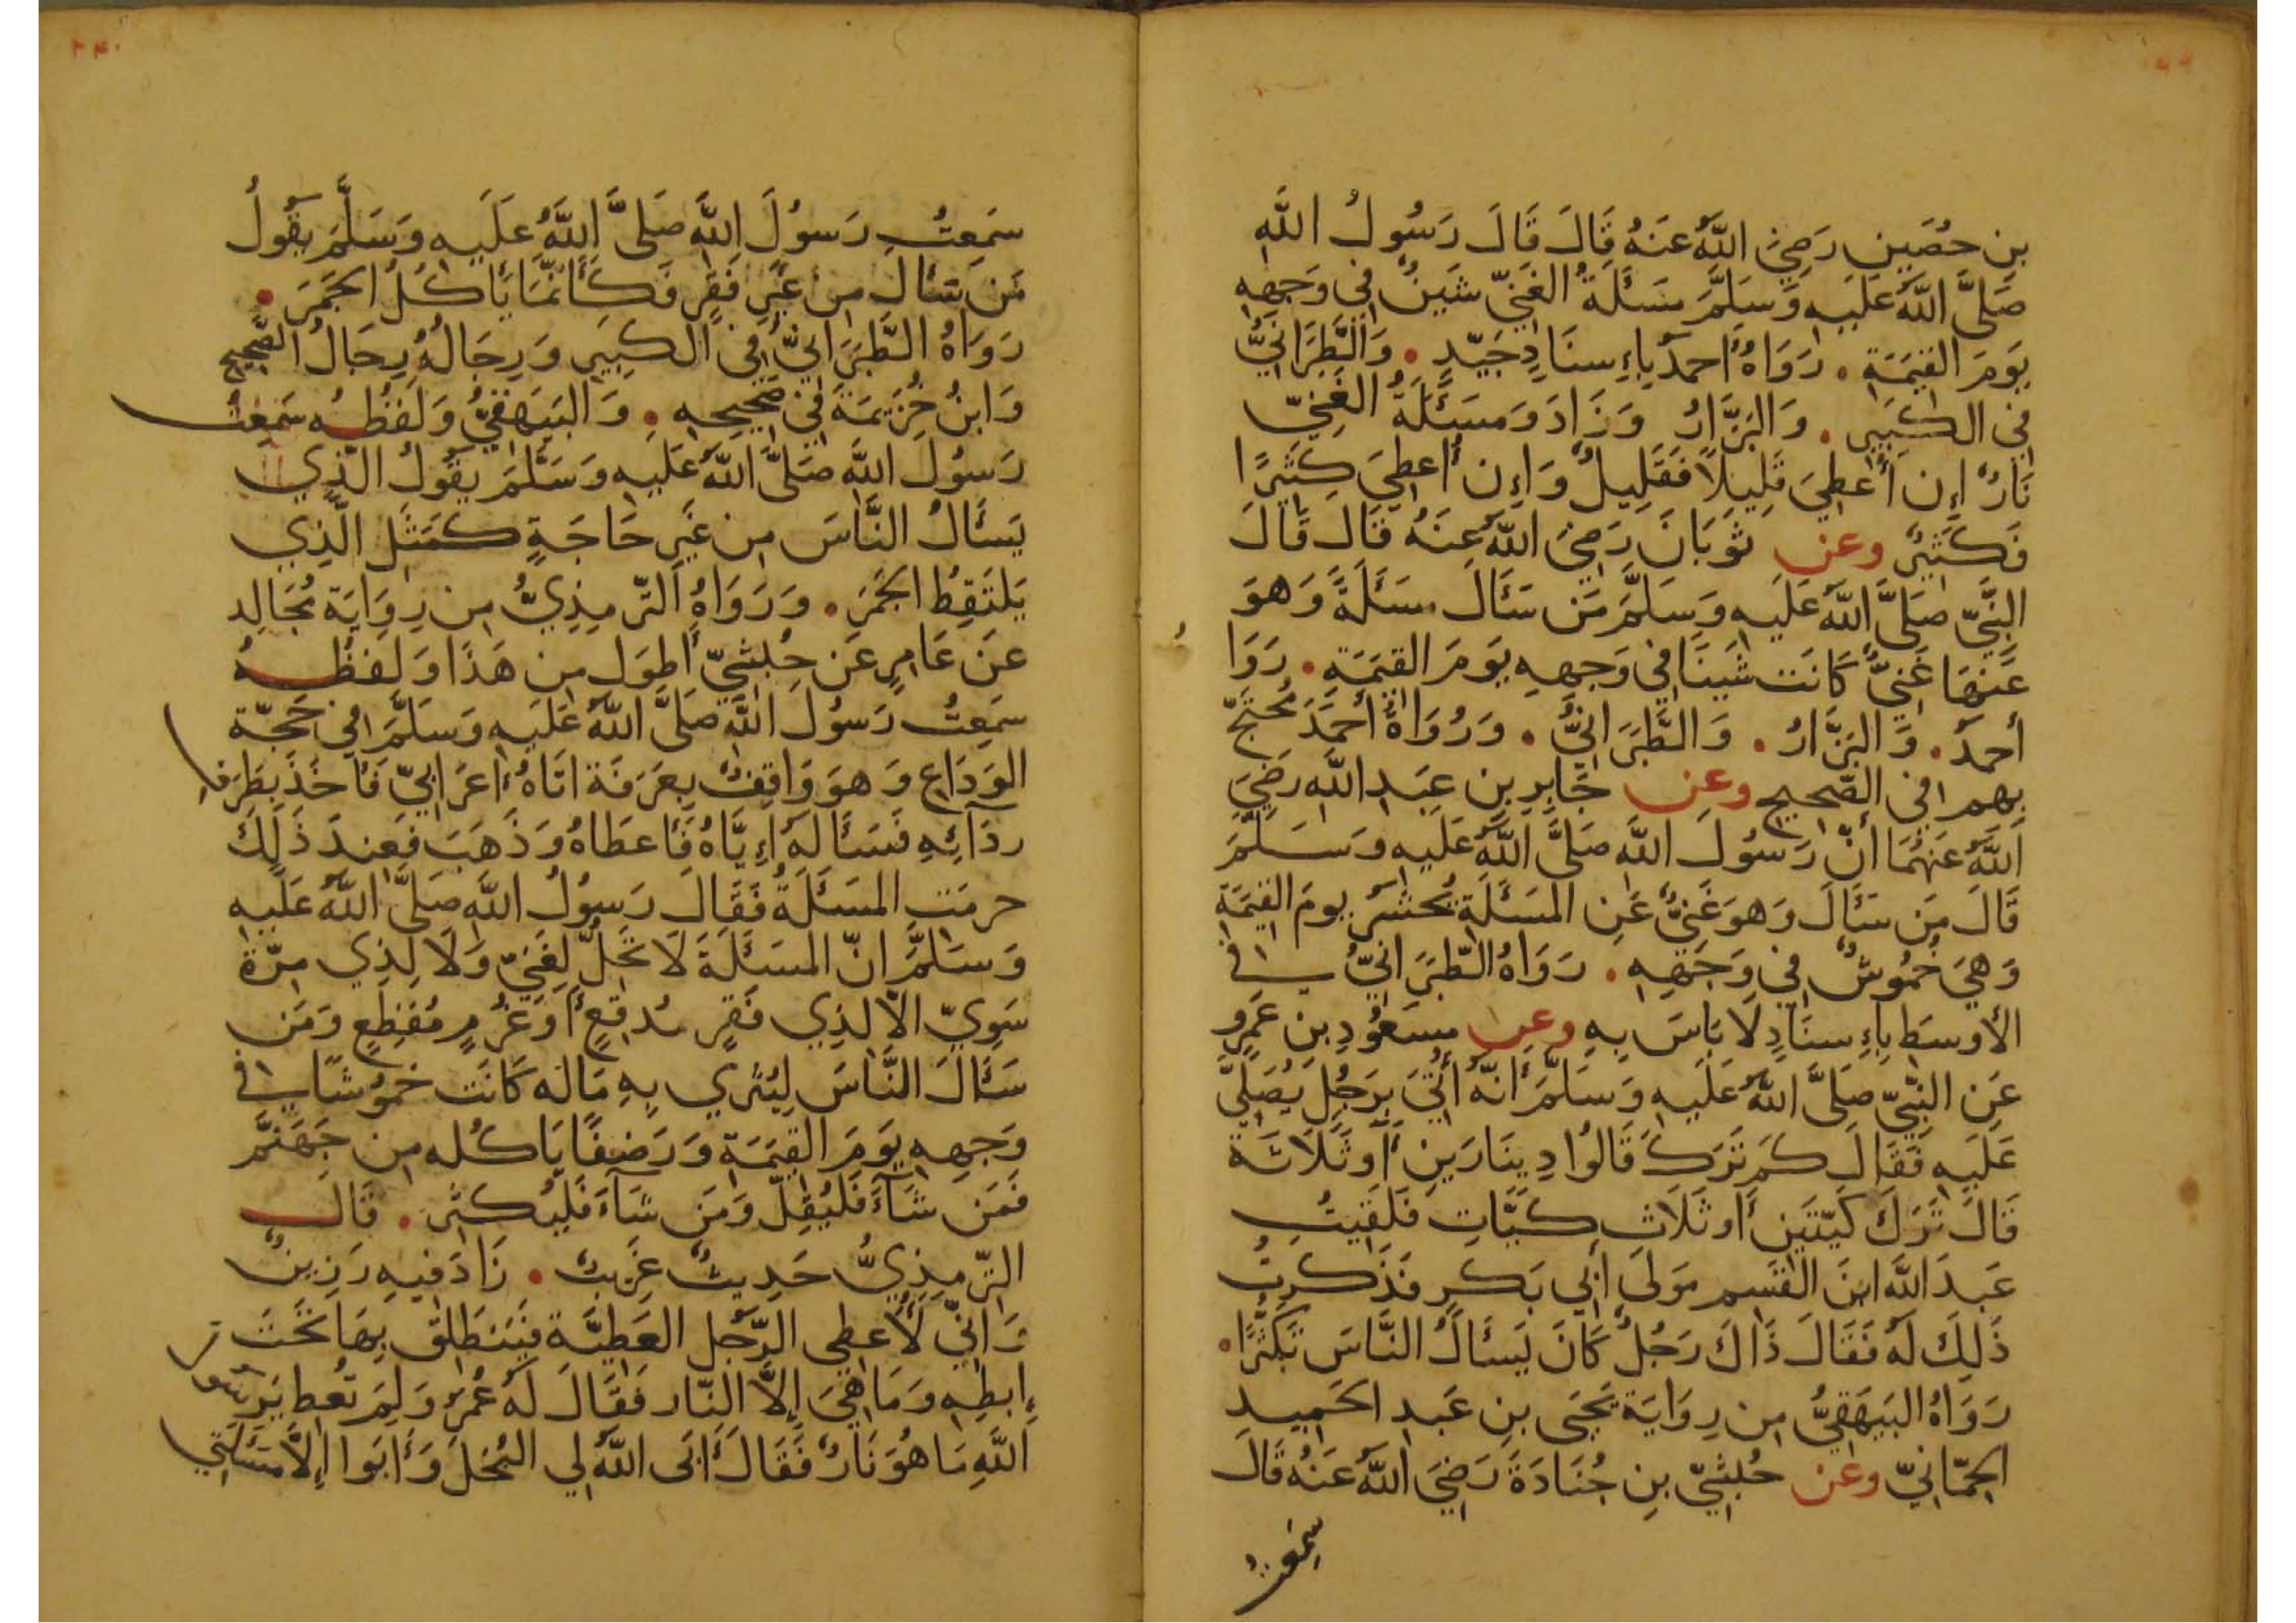 بِن حُصَينٍ رَضِيَ اللَّهُ عَنهُ قَالَ قَالَ رَسُولُ اللَّهِ
صَلَّى اللَّهُ عَلَيهِ وَسَلَّمَ مَسئَلَةُ الغَنِيِّ شَينٌ فِي وَجهِهِ
يَومَ القِيٰمَةِ . رَوَاهُ أَحمدُ بِإِسنَادٍ جَيِّدٍ . وَالطَّبَرَانِيُّ
فِي الكَبِيرِ . وَالبَزَّارُ وَزَادَ وَمَسئَلَةُ الغَنِيِّ
نَارٌ إِن أُعطِيَ قَلِيلًا فَقَلِيلٌ وَإِن أُعطِيَ كَثِيرًا
فَكَثِيرٌ وعن ثَوبَانَ رَضِيَ اللَّهُ عَنهُ قَالَ قَالَ
النَّبِيِّ صَلَّى اللَّهُ عَلَيهِ وَسَلَّمَ مَن سَئَالَ مسئَلَةً وَهوَ
عَنهَا غَنِيٌّ كَانَت شَينًا فِي وَجهِهِ يَومَ القِيٰمَةِ . رَوَا
أَحمدُ . وَالبَزَّارُ . وَالطَّبَرَانِيُّ . وَرُوَاةُ أَحمَدَ مُحتَجٌّ
بِهِم فِي الصَّحِيحِ وعن جَابِرِ بنِ عَبدِ اللَّهِ رَضِيَ
اللَّهُ عَنهُمَا أَنَّ رَسُولَ اللَّهِ صَلَّى اللَّهُ عَلَيهِ وَسَلَّمَ
قَالَ مَن سَئَالَ وَهوَ غَنِيٌّ عَنِ المَسئَلَةِ يُحشَرُ يومَ القِيٰمَةِ
وَهيَ خُمُوشٌ فِي وَجهِهِ . رَوَاهُ الطَّبَرَانِيُّ في
الأَوسَطِ بِإِسنَادٍ لَا بَاسَ بِهِ وعن مسعُودِ بنِ عَمرٍو
عَنِ النَّبِيِّ صَلَّى اللَّهُ عَلَيهِ وَسَلَّمَ أَنَّهُ أُتِيَ بِرَجُلٍ يُصَلِّيَ
عَلَيهِ فَقَالَ كَم تَرَكَ قَالُوا دِينَارَينِ أَو ثَلَاثَةً
قَالَ تَرَكَ كَيَّتَينِ أَو ثَلَاثَ كَيَّاتٍ فَلَقِيتُ
عَبدَ اللَّهِ ابنَ القٰسِمِ مَولَى أَبِي بَكرٍ فَذَكَرتُ
ذَلِكَ لَهُ فَقَالَ ذَاكَ رَجُلٌ كَانَ يَسئَالُ النَّاسَ تَكَثُّرًا .
رَوَاهُ البَيهَقِيُّ مِن رِوَايَةِ يَحيَى بنِ عَبدِ الحَمِيدِ
الحِمَّانِيِّ وعن حُبشِيِّ بنِ جُنَادَةَ رَضِيَ اللَّهُ عَنهُ قَالَ
سَمِعتُ
٢٤٠
سَمِعتُ رَسُولَ اللَّهِ صَلَّى اللَّهُ عَلَيهِ وَسَلَّمَ يَقُولُ
مَن سَئَالَ مِن غَيرِ فَقرٍ فَكَأَنَّمَا يَأكُلُ الجَمرَ .
رَوَاهُ الطَّبَرَانِيُّ فِي الكَبِيرِ وَرِجَالُهُ رِجَالُ الصَّحِيحِ
وَابنُ خُزَيمَةَ فِي صَحِيحِهِ . وَالبَيهَقِيُّ وَلَفظُهُ سَمِعتُ
رَسُولَ اللَّهِ صَلَّى اللَّهُ عَلَيهِ وَسَلَّمَ يَقُولُ الَّذِي
يَسئَالُ النَّاسَ مِن غَيرِ حَاجَةٍ كَمَثَلِ الَّذِي
يَلتَقِطُ الجَمرَ . وَرَوَاهُ التِّرمِذِيُّ مِن رِوَايَةِ مُجَالِدٍ
عَن عَامِرٍ عَن حُبشِيٍّ أَطوَلَ مِن هَذَا وَلَفظُهُ
سَمِعتُ رَسُولَ اللَّهِ صَلَّى اللَّهُ عَلَيهِ وَسَلَّمَ فِي حَجَّةِ
الوَدَاعِ وَهوَ وَاقِفٌ بِعَرَفَةَ اتَاهُ أَعرَابِيٌّ فَأَخَذَ بِطَرَفِ
رِدَآئِهِ فَسَأَلَهُ إِيَّاهُ فَأَعطَاهُ وَذَهَبَ فَعِندَ ذَلِكَ
حرمَتِ المَسئَلَةُ فَقَالَ رَسُولُ اللَّهِ صَلَّى اللَّهُ عَلَيهِ
وَسَلَّمَ انَّ المَسئَلَةَ لَا تَحِلُّ لِغَنِيٍّ وَلَا لِذِي مِرَّةٍ
سَوِيٍّ الَّا لِذِي فَقرٍ مُدقِعٍ أَو غُرمٍ مُفظِعٍ وَمَن
سَئَالَ النَّاسَ لِيُثرِي بِهِ مَالَه كَانَت خمُوشًا في
وَجهِهِ يَومَ القِيٰمَةِ وَرَضفًا يَاكُله مِن جَهَنَّمَ
فَمَن شَآءَ فَليُقِلَّ وَمَن شَآءَ فَليُكثِر . قَالَ
التِّرمِذِيُّ حَدِيثٌ غَرِيبٌ . زَادَ فِيهِ رَزِينٌ
وَانِّي لَأُعطِي الرَّجُلَ العَطِيَّةَ فَيَنطَلِقُ بِهَا تَحتَ
إِبطِهِ وَمَا هِيَ إِلَّا النَّار فَقَالَ لَهُ عُمَرُ وَلِمَ تُعطِ يَرسُو
اللَّهِ مَا هُوَ نَارٌ فَقَالَ أَبَى اللَّهُ لِي البُخلَ وَأَبَوا إِلَّا مَسئَلَتِي